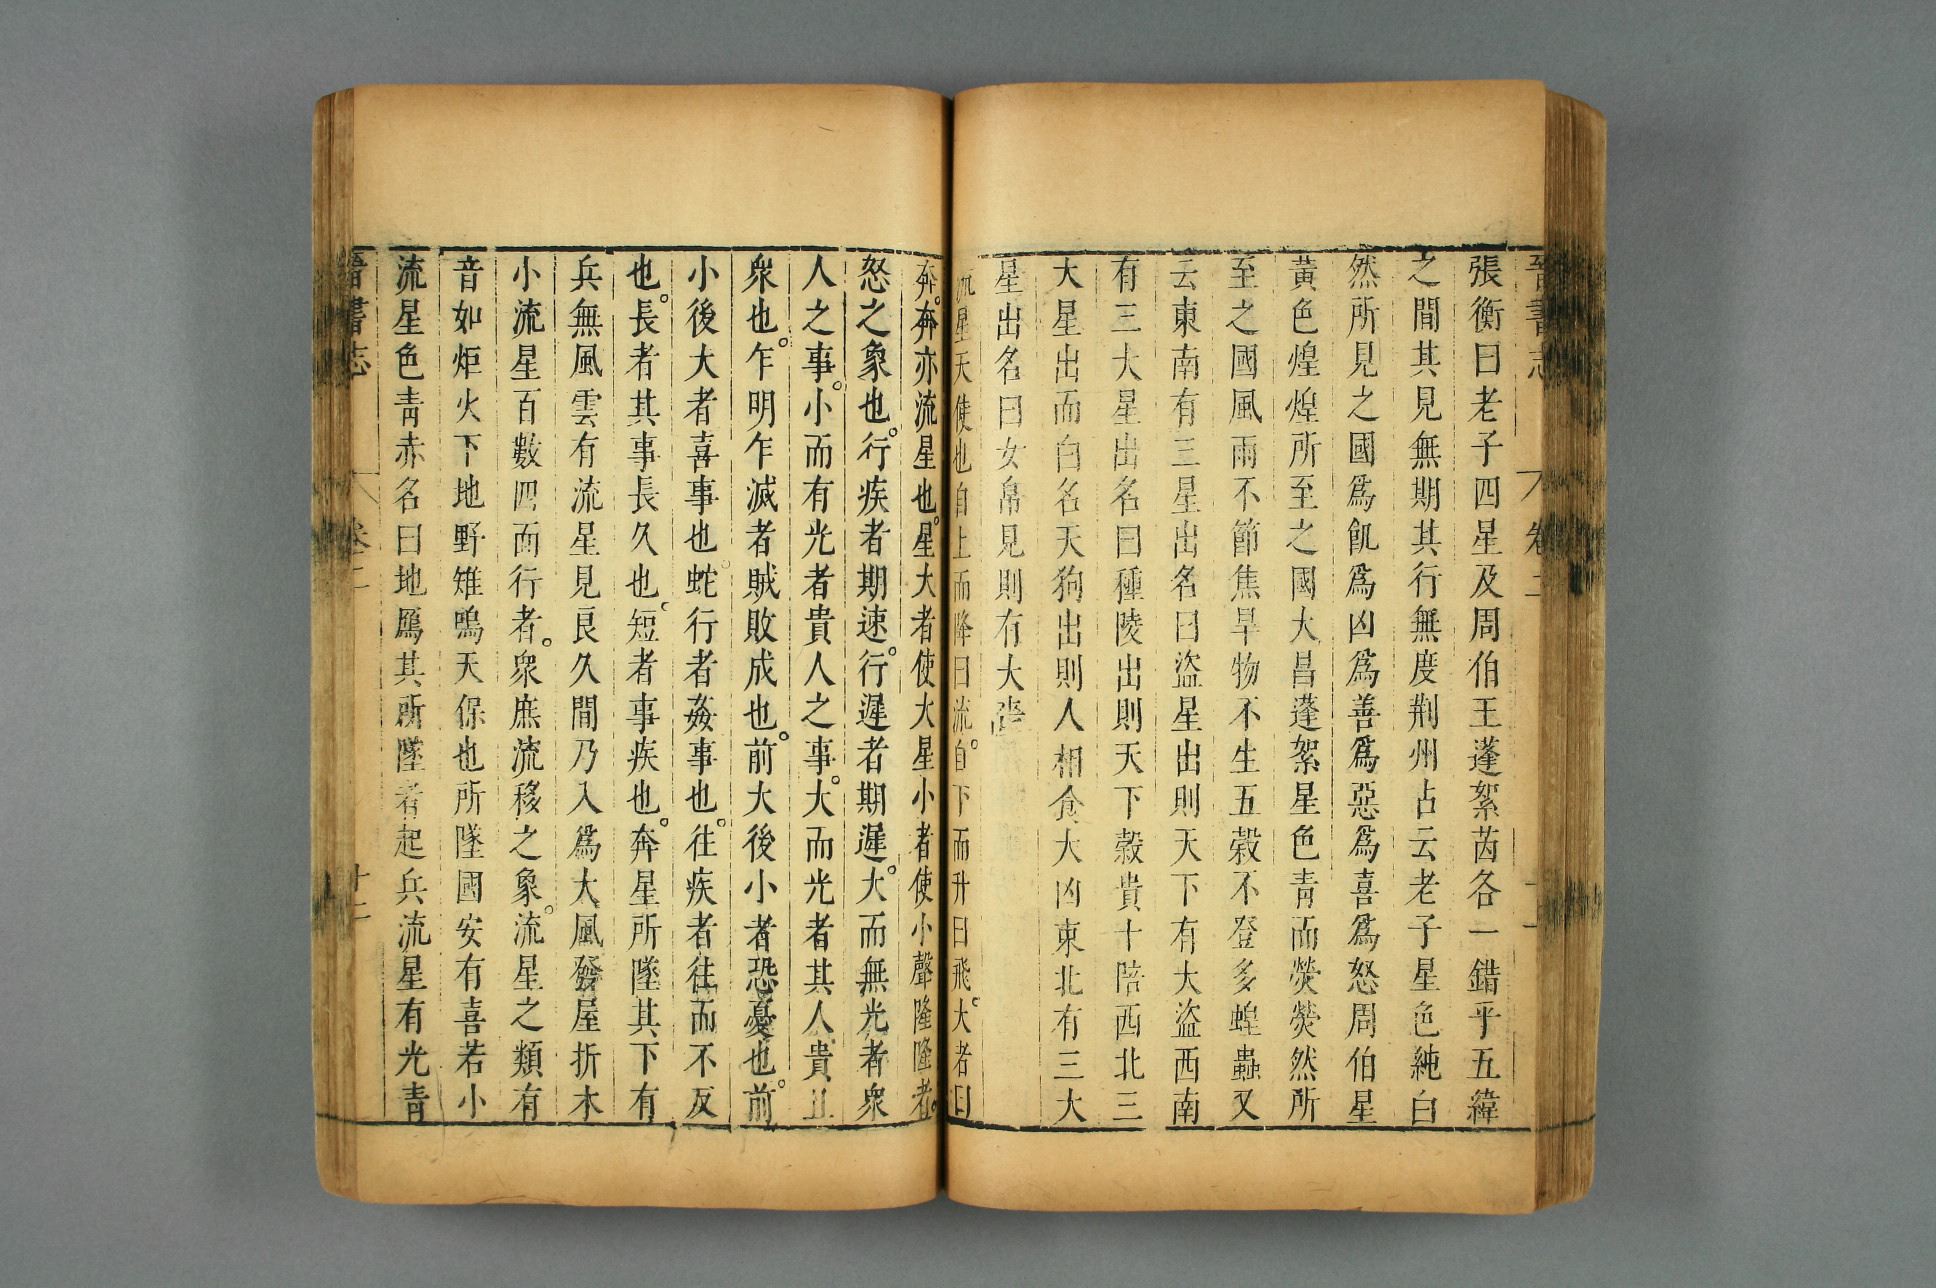 晉書志 卷二 十一
張衡曰老子四星及周伯王蓬絮芮各一錯乎五緯
之間其見無期其行無度荆州占云老子星色純白
然所見之國爲飢爲凶爲善爲惡爲喜爲怒周伯星
黃色煌煌所至之國大昌蓬絮星色青而熒熒然所
至之國風雨不節焦旱物不生五穀不登多蝗蟲又
云東南有三星出名曰盜星出則天下有大盜西南
有三大星出名曰種陵出則天下穀貴十陪西北三
大星出而白名天狗出則人相食大凶東北有三大
星出名曰女帛見則有大喪
流星天使也自上而降曰流。自下而升曰飛。大者曰
奔。奔亦流星也。星大者使大星小者使小聲隆隆者。
怒之象也。行疾者期速。行遲者期遲。大而無光者衆
人之事。小而有光者貴人之事。大而光者其人貴且
衆也。乍明乍滅者賊敗成也。前大後小者恐憂也。前
小後大者喜事也。蛇行者姦事也。往疾者往而不反
也。長者其事長久也。短者事疾也。奔星所墜其下有
兵無風雲有流星見良久間乃入爲大風發屋折木
小流星百數四面行者。衆庶流移之象。流星之類有
音如炬火下地野雉鳴天保也所墜國安有喜若小
流星色青赤名曰地鴈其所墜者起兵流星有光青
晉書志 卷二 十二